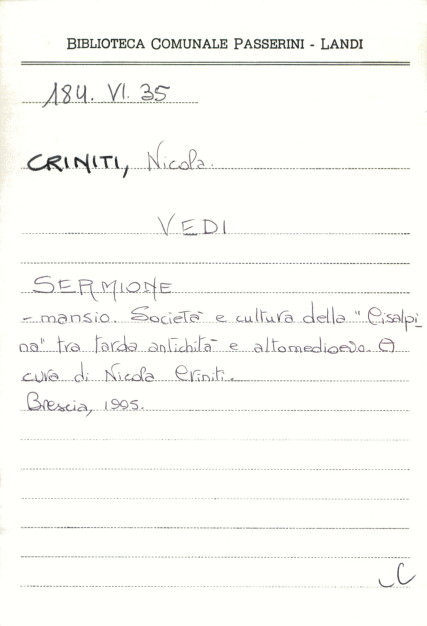 BIBLIOTECA COMUNALE PASSERINI - LANDI
184. VI. 35
CRINITI, Nicola.
VEDI
SERMIONE
- mansio. Società e cultura della "Cisalpi-
na" tra tarda antichità e altomedioevo. A
cura di Nicola Criniti.
Brescia, 1995.